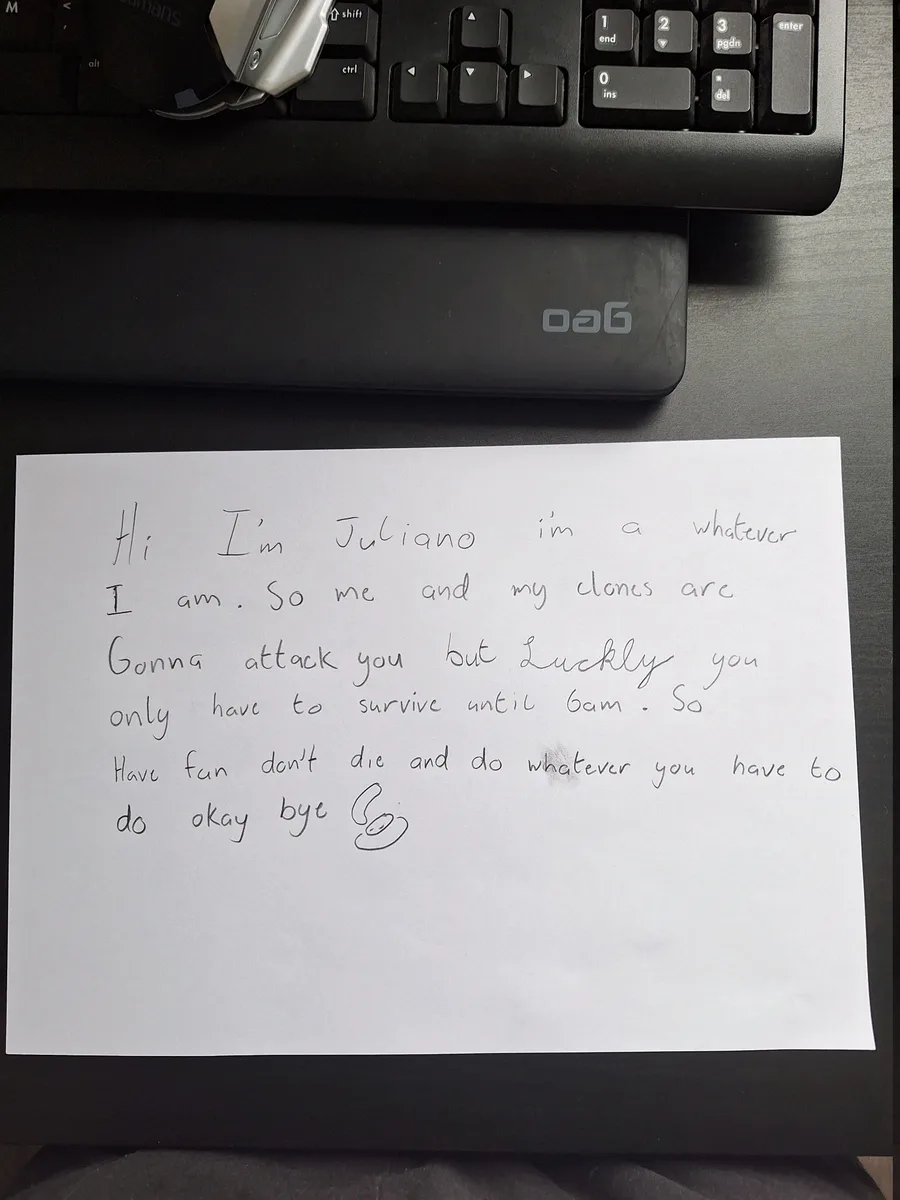 M
<
umans
alt
⇧ shift
ctrl
▲
◀ ▼ ▶
1 end
2 ▼
3 pgdn
enter
0 ins
del
Hi I'm Juliano i'm a whatever
I am. So me and my clones are
Gonna attack you but Luckly you
only have to survive until 6am. So
Have fun don't die and do whatever you have to
do okay bye